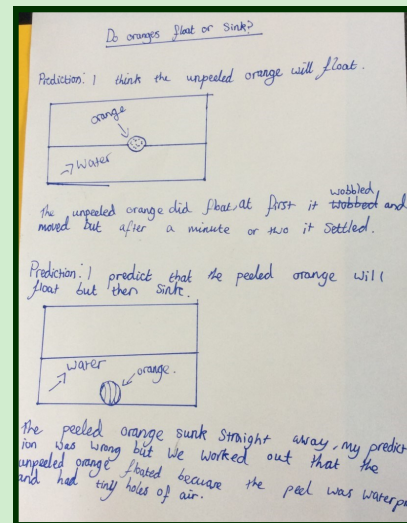 Do oranges float or sink?
Prediction: I think the unpeeled orange will float.
orange
water
wobbled
The unpeeled orange did float, at first it wobbect and
moved but after a minute or two it settled.
Prediction: I predict that the peeled orange will
float but then sink.
water
orange.
The peeled orange sunk straight away, my predict
ion was wrong but we worked out that the
unpeeled orange floated because the peel was waterp
and had tiny holes of air.